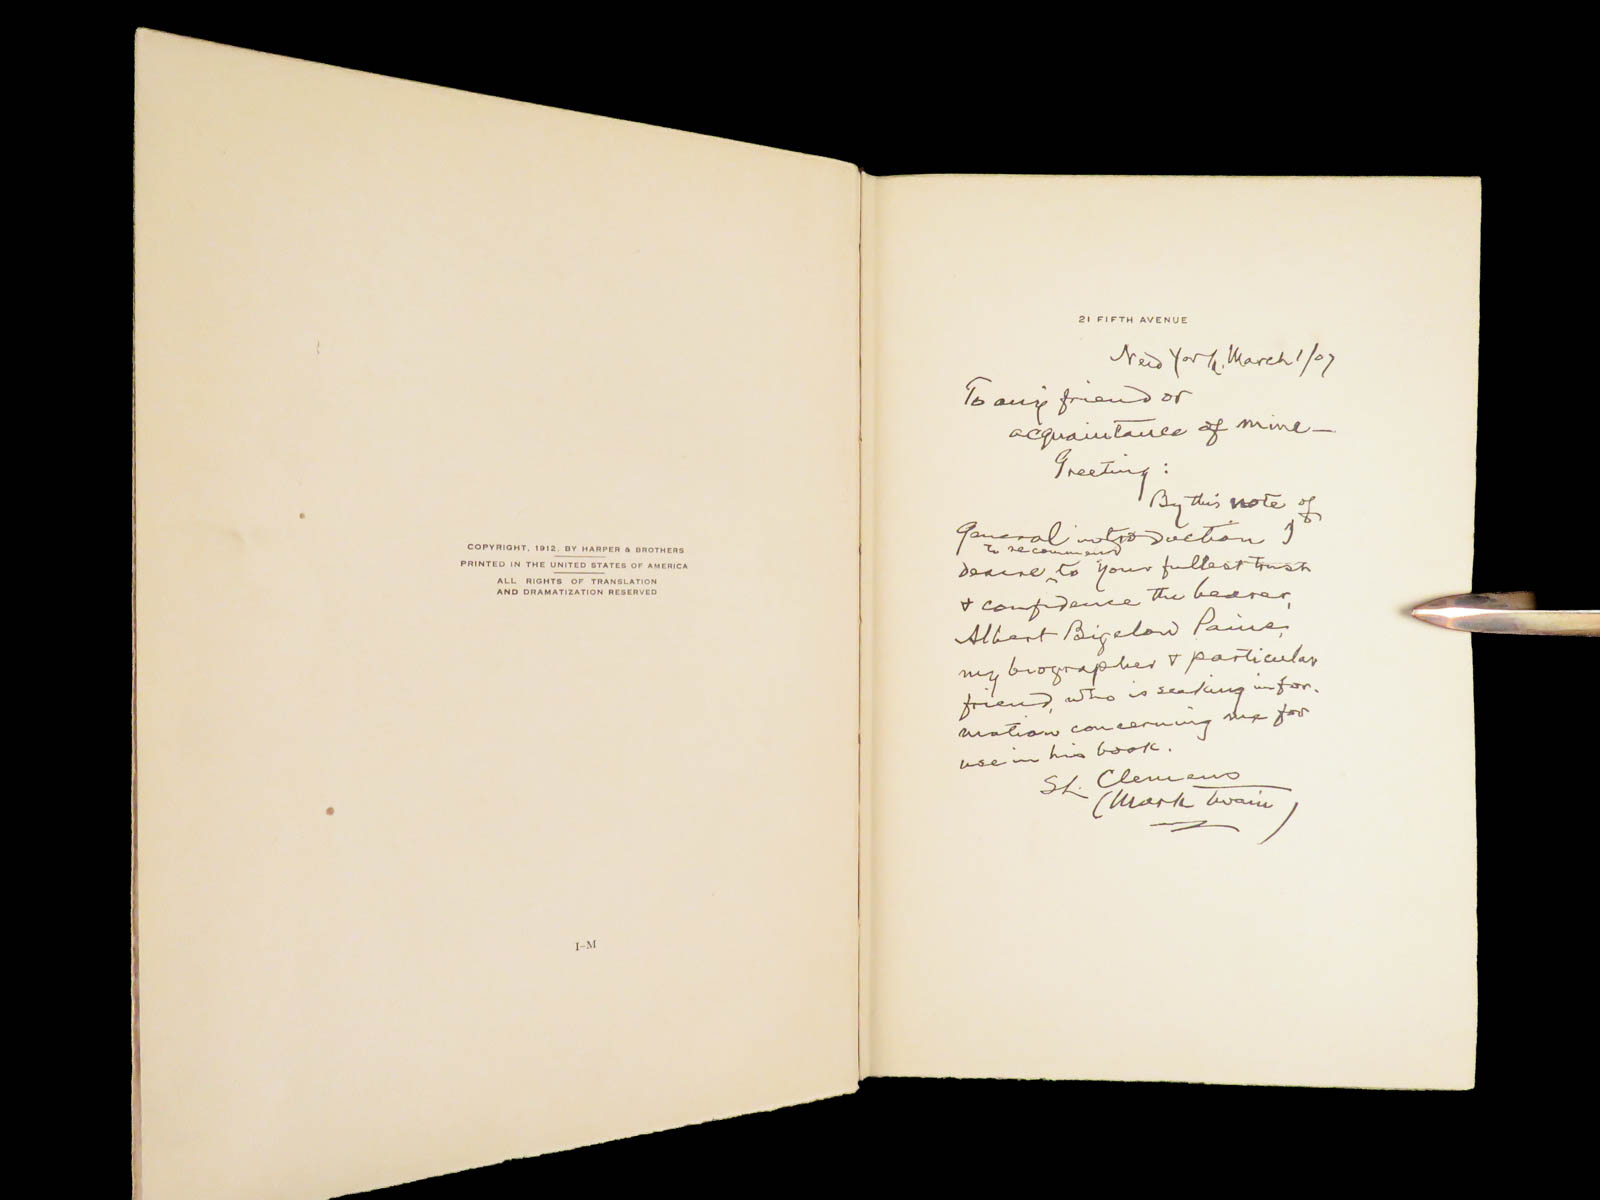 COPYRIGHT, 1912, BY HARPER & BROTHERS
PRINTED IN THE UNITED STATES OF AMERICA
ALL RIGHTS OF TRANSLATION
AND DRAMATIZATION RESERVED
I-M
21 FIFTH AVENUE
New York, March 1/07
To any friend or
acquaintance of mine—
Greeting:
By this note of
General introduction I
to recommend
desire ^ to your fullest trust
& confidence the bearer,
Albert Bigelow Paine,
my biographer & particular
friend, who is seeking infor-
mation concerning me for
use in his book.
SL. Clemens
(Mark Twain)